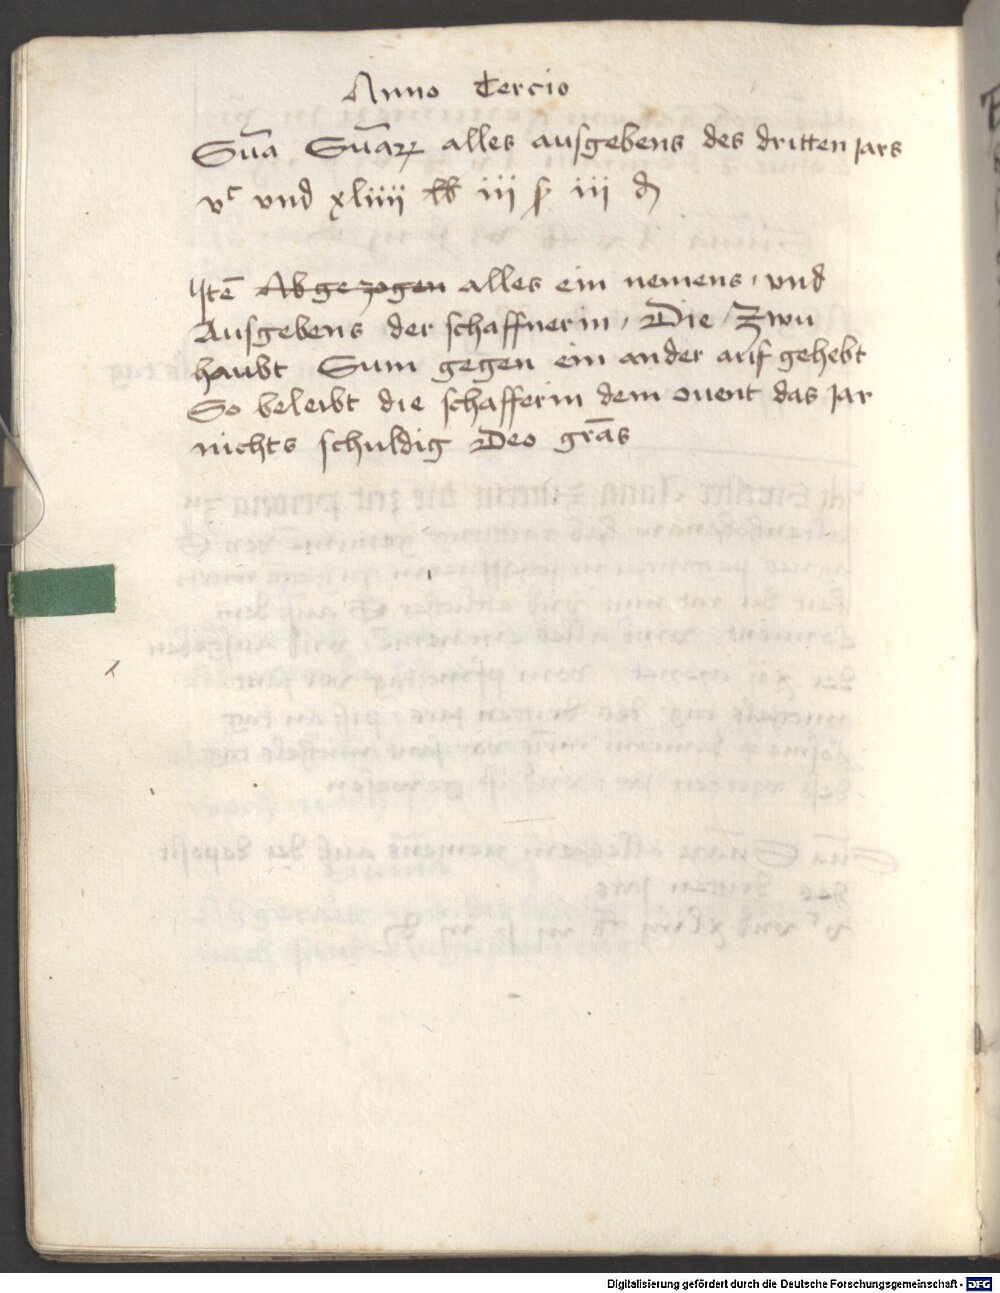 Anno Tercio
Sūa Sūaꝝ alles ausgebens des dritten jars
vᶜ und xliiii lb iii ß iii d
Itē Abgezogen alles ein nemens, und
Ausgebens der schaffnerin, Die Zwu
haubt Sum gegen ein ander auf gehebt
So beleibt die schafferin dem ouent das jar
nichts schuldig Deo grās
Digitalisierung gefördert durch die Deutsche Forschungsgemeinschaft - DFG